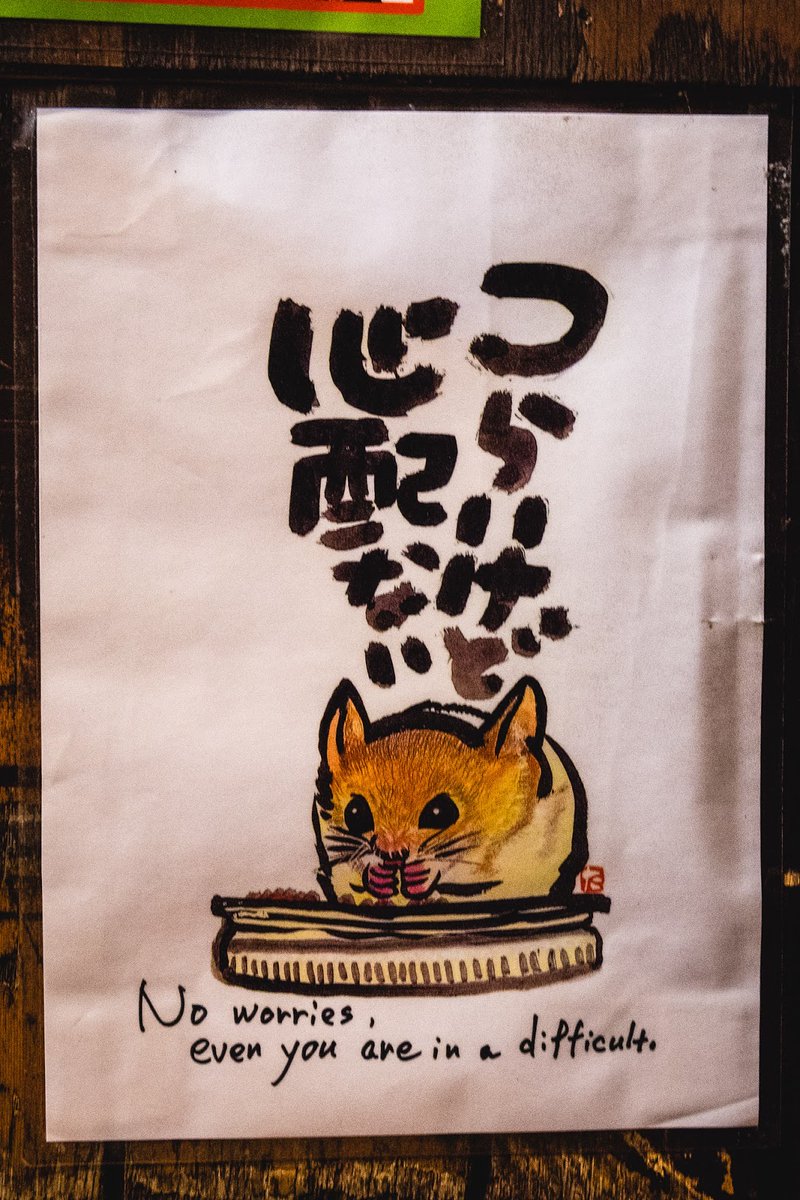 つらいけど
心配ない
No worries,
even you are in a difficult.